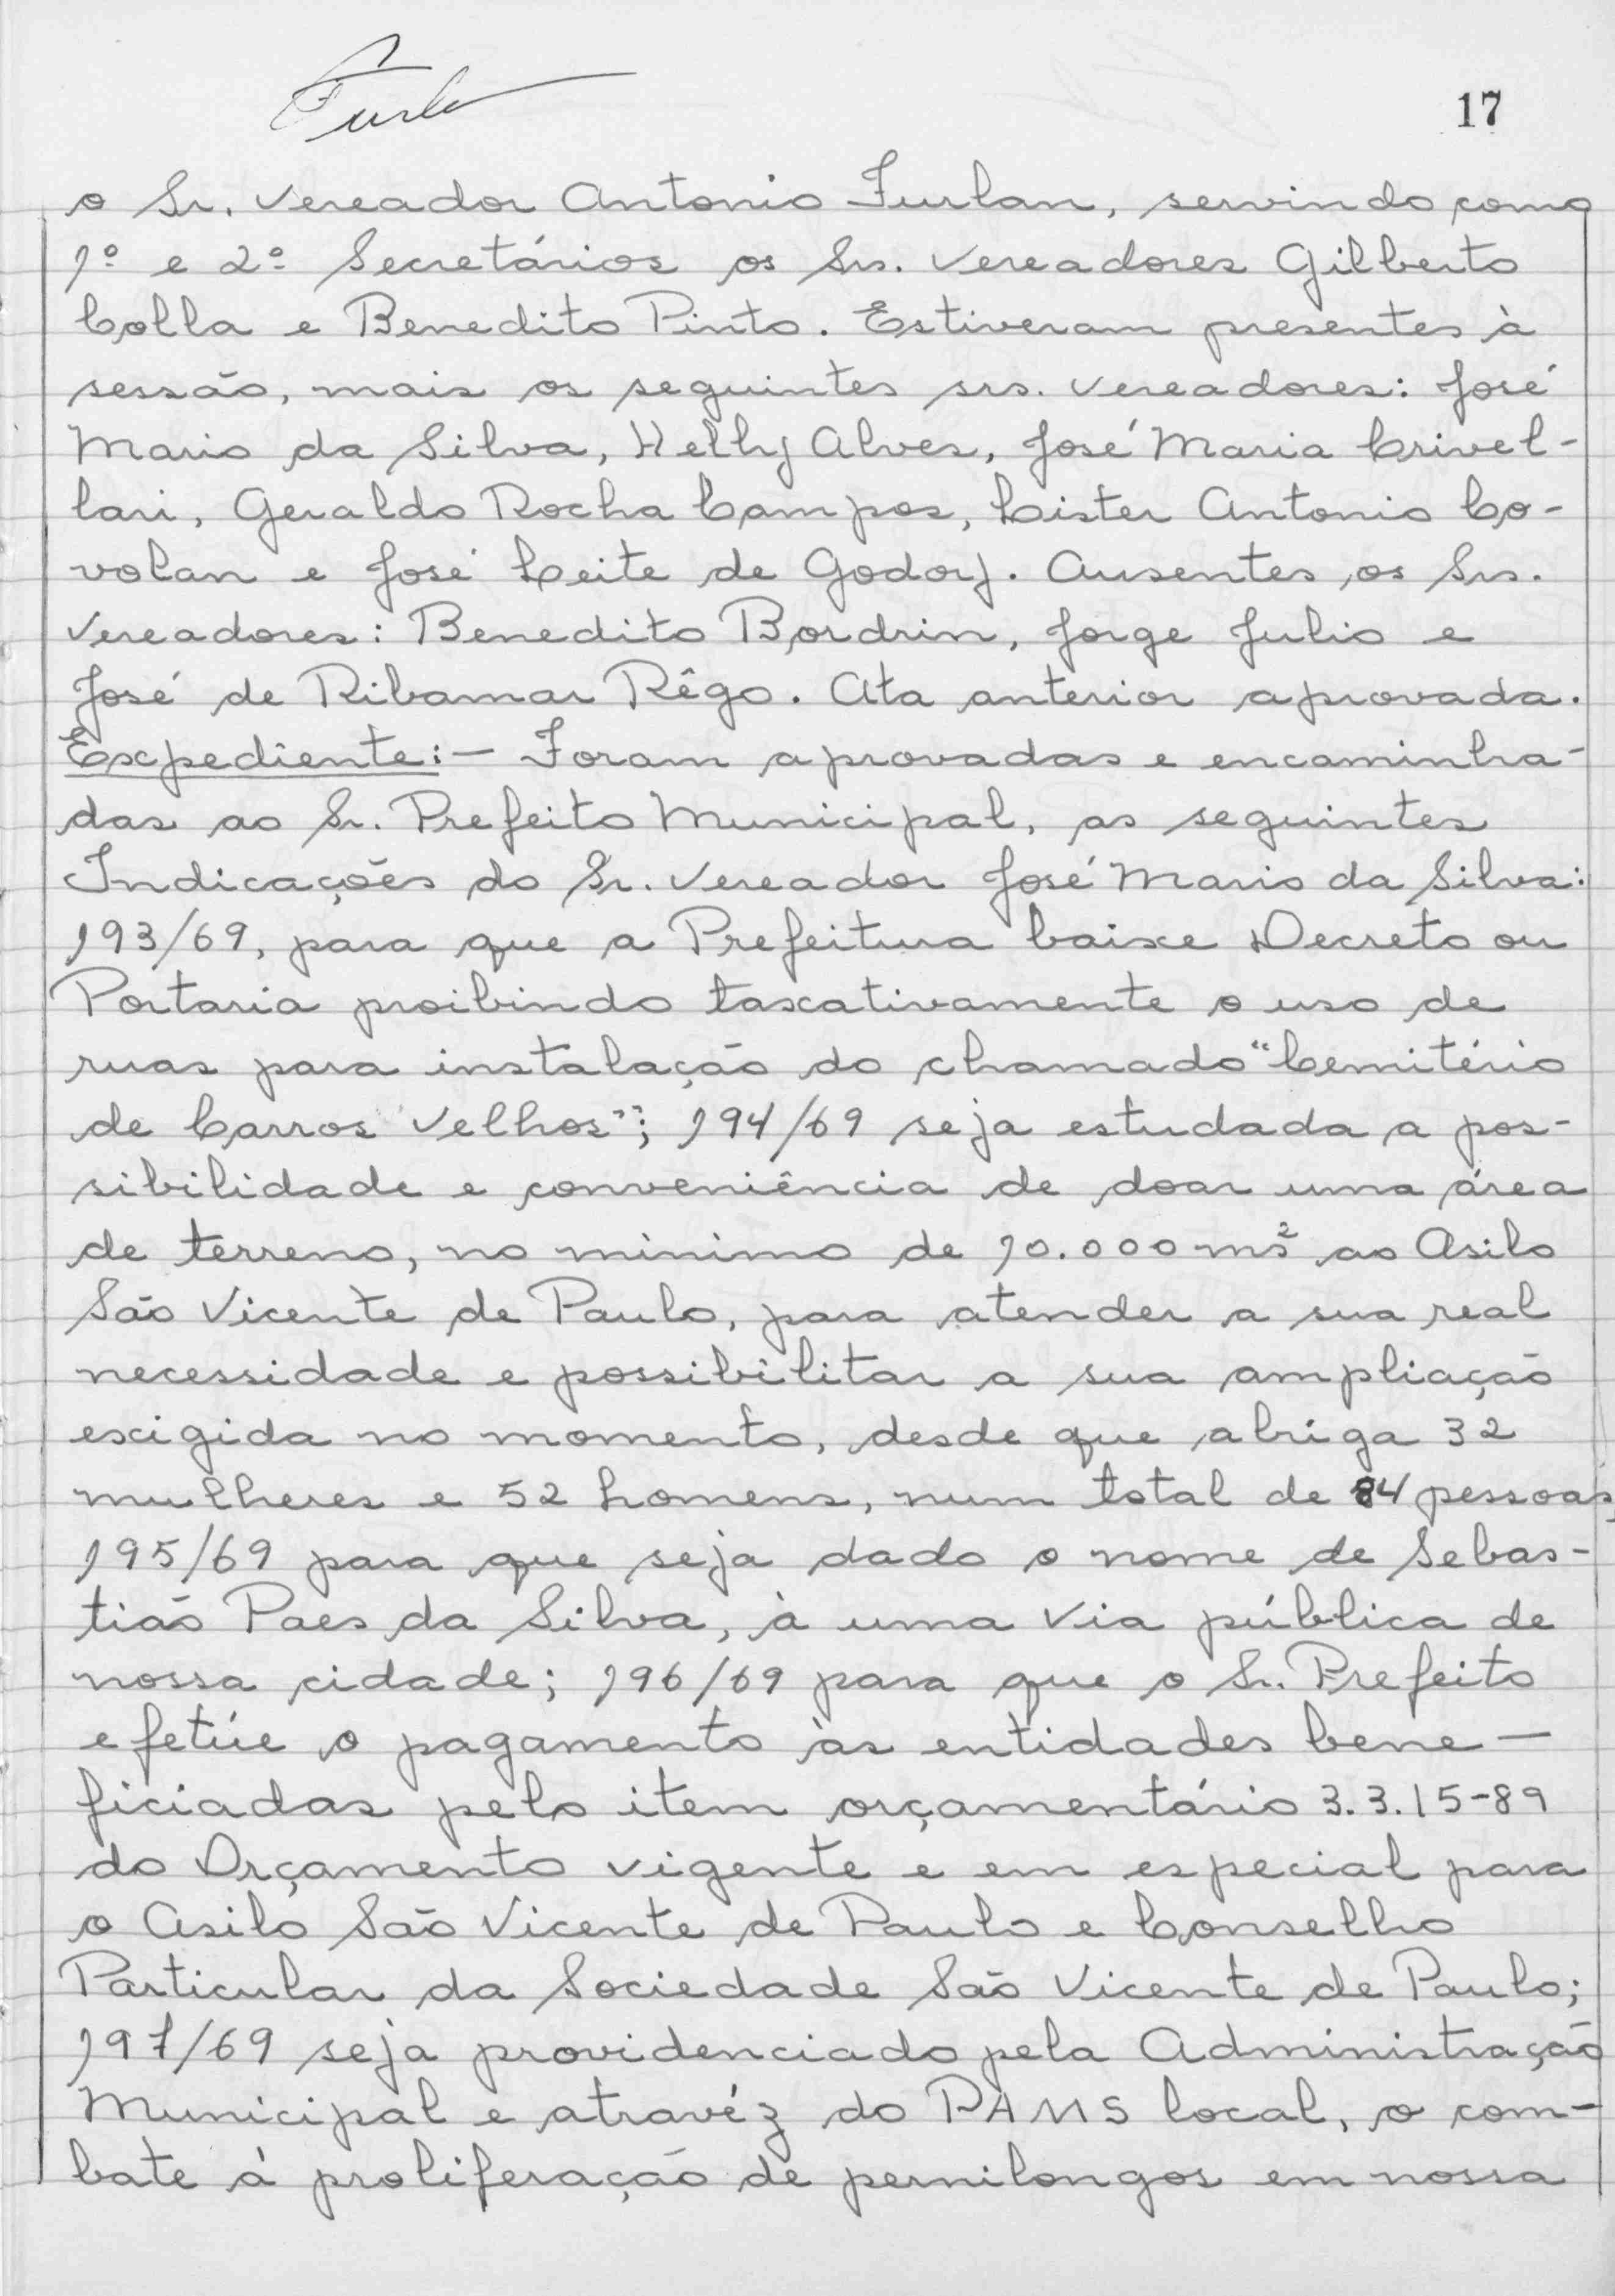 Furla
17
o Sr. Vereador Antonio Furlan, servindo como
1º e 2º Secretários os Srs. Vereadores Gilberto
Colla e Benedito Pinto. Estiveram presentes à
sessão, mais os seguintes srs. Vereadores: José
Mario da Silva, Helly Alves, José Maria Crivel-
lari, Geraldo Rocha Campos, Lister Antonio Co-
volan e José Leite de Godoy. Ausentes os Srs.
Vereadores: Benedito Bordrin, Jorge Julio e
José de Ribamar Rêgo. Ata anterior aprovada.
Expediente:- Foram aprovadas e encaminha-
das ao Sr. Prefeito Municipal, as seguintes
Indicações do Sr. Vereador José Mario da Silva:
193/69, para que a Prefeitura baixe Decreto ou
Portaria proibindo taxativamente o uso de
ruas para instalação do chamado "Cemitério
de Carros Velhos"; 194/69 seja estudada a pos-
sibilidade e conveniência de doar uma área
de terreno, no minimo de 10.000 ms² ao Asilo
São Vicente de Paulo, para atender a sua real
necessidade e possibilitar a sua ampliação
exigida no momento, desde que abriga 32
mulheres e 52 homens, num total de 84 pessoas;
195/69 para que seja dado o nome de Sebas-
tião Paes da Silva, à uma Via pública de
nossa cidade; 196/69 para que o Sr. Prefeito
efetúe o pagamento às entidades bene-
ficiadas pelo item orçamentário 3.3.15-89
do Orçamento vigente e em especial para
o Asilo São Vicente de Paulo e Conselho
Particular da Sociedade São Vicente de Paulo;
197/69 seja providenciado pela Administração
Municipal e atravéz do PAMS local, o com-
bate à proliferação de pernilongos em nossa